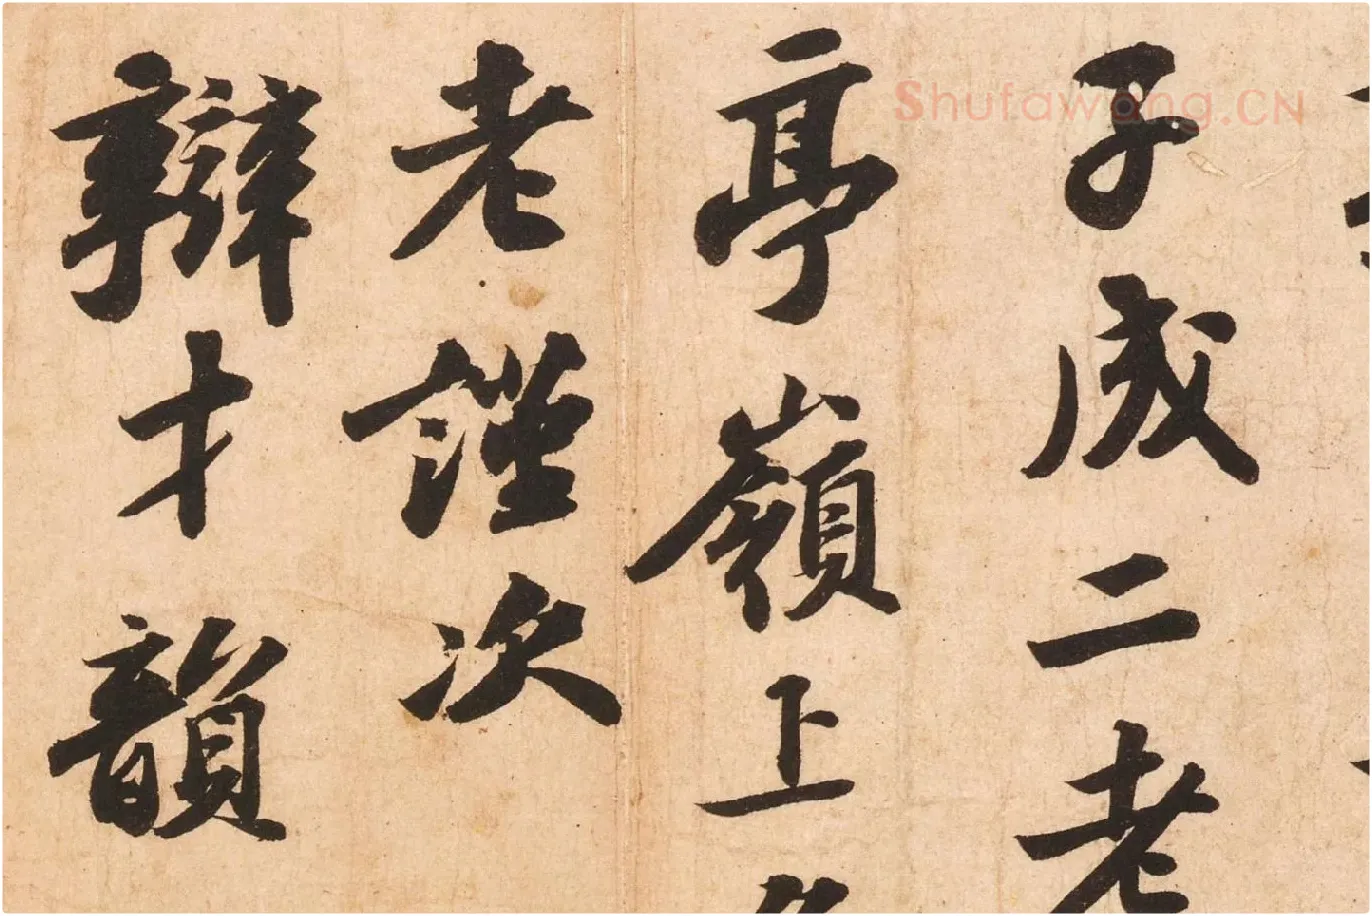 子成二老
亭嶺上
老謹次
辯才韻
Shufawang.CN